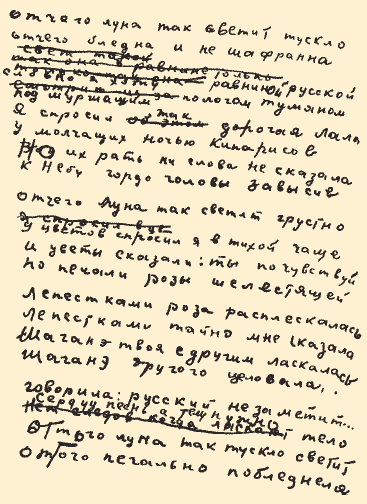 отчего луна так светит тускло
отчего бледна и не шафранна
свет такой
так она в равнине только
словно я хожу на равниной русской
смотрит из за
под шуршащим пологом туманом
Я спросил так дорогая Лала
У молчащих ночью кипарисов
Но их рать ни слова не сказала
К Небу гордо головы завысив
отчего Луна так светит грустно
я спросил в
У цветов спросил я в тихой чаще
и цветы сказали: ты почувствуй
по печали розы шелестящей
Лепестками роза расплескалась
Лепестками тайно мне сказала
Шаганэ твоя с другим ласкалась
Шаганэ другого целовала,.
говорила: русский не заметит...
Сердцу песнь а песне жизнь и тело
Нет следов когда ласкают
От того луна так тускло светит
отого печально побледнела